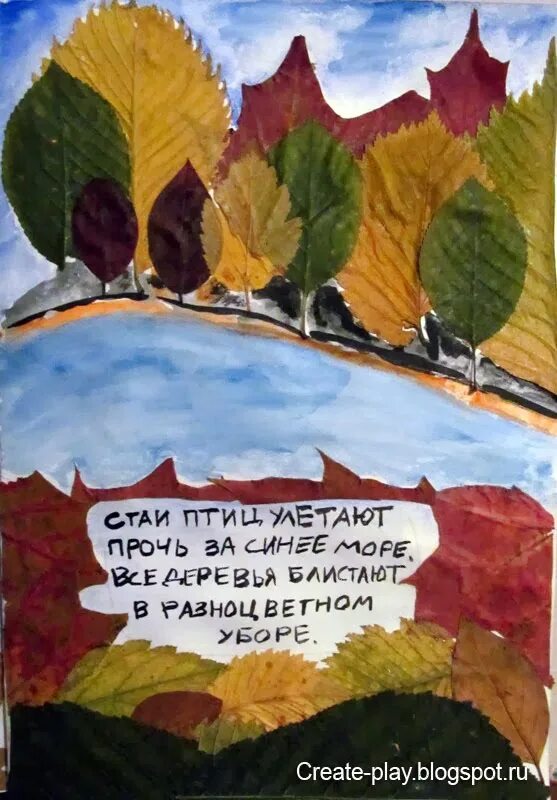 СТАИ ПТИЦ УЛЕТАЮТ
ПРОЧЬ ЗА СИНЕЕ МОРЕ.
ВСЕ ДЕРЕВЬЯ БЛИСТАЮТ
В РАЗНОЦВЕТНОМ
УБОРЕ.
Create-play.blogspot.ru